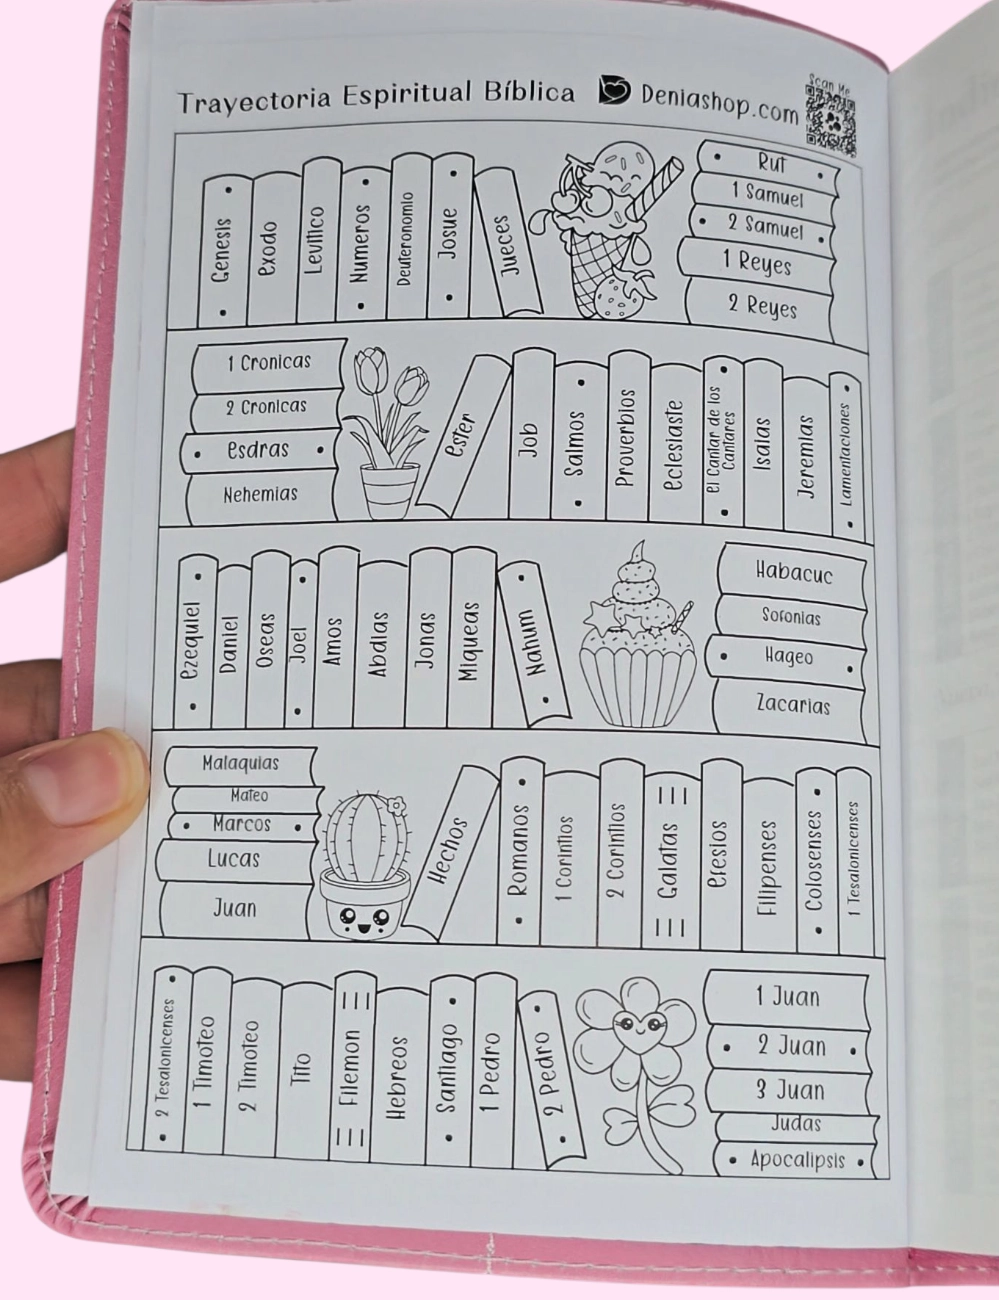 Trayectoria Espiritual Bíblica Deniashop.com
Scan Me
Genesis
Exodo
Levitico
Numeros
Deuteronomio
Josue
Jueces
Rut
1 Samuel
2 Samuel
1 Reyes
2 Reyes
1 Cronicas
2 Cronicas
Esdras
Nehemias
Ester
Job
Salmos
Proverbios
Eclesiaste
El Cantar de los
Cantares
Isaias
Jeremias
Lamentaciones
Ezequiel
Daniel
Oseas
Joel
Amos
Abdias
Jonas
Miqueas
Nahum
Habacuc
Sofonias
Hageo
Zacarias
Malaquias
Mateo
Marcos
Lucas
Juan
Hechos
Romanos
1 Corintios
2 Corintios
Galatas
Efesios
Filipenses
Colosenses
1 Tesalonicenses
2 Tesalonicenses
1 Timoteo
2 Timoteo
Tito
Filemon
Hebreos
Santiago
1 Pedro
2 Pedro
1 Juan
2 Juan
3 Juan
Judas
Apocalipsis